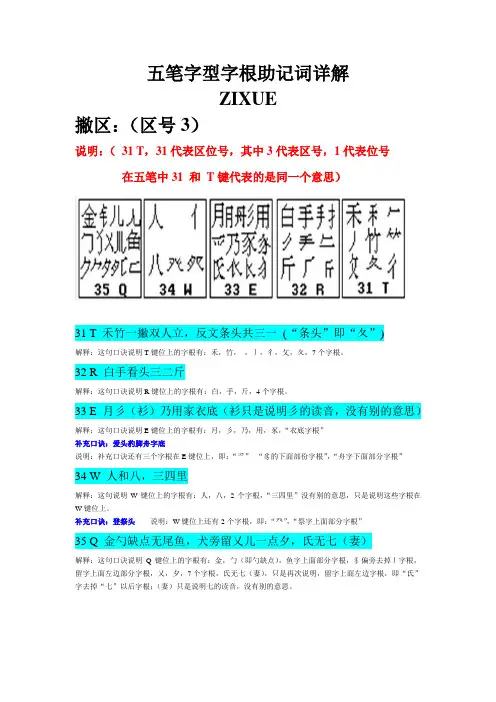 五笔字型字根助记词详解
ZIXUE
撇区：（区号 3）
说明：（ 31 T，31代表区位号，其中3代表区号，1代表位号
在五笔中31 和 T键代表的是同一个意思）
35 Q 34 W 33 E 32 R 31 T
31 T 禾竹一撇双人立，反文条头共三一（“条头”即“夂”）
解释：这句口诀说明T键位上的字根有：禾，竹， ，丿，彳，攵，夂，7个字根。
32 R 白手看头三二斤
解释：这句口诀说明R键位上的字根有：白，手，斤，4个字根。
33 E 月彡（衫）乃用家衣底（衫只是说明彡的读音，没有别的意思）
解释：这句口诀说明E键位上的字根有：月，彡，乃，用，豕，“衣底字根”
补充口诀：爱头豹脚舟字底
说明：补充口诀还有三个字根在E键位上，即：“爫” “豸的下面部份字根”，“舟字下面部分字根”
34 W 人和八，三四里
解释：这句说明W键位上的字根有：人，八，2个字根，“三四里”没有别的意思，只是说明这些字根在
W键位上。
补充口诀：登祭头 说明：W键位上还有2个字根，即：“癶”，“祭字上面部分字根”
35 Q 金勺缺点无尾鱼，犬旁留乂儿一点夕，氏无七（妻）
解释：这句口诀说明Q键位上的字根有：金，勹（即勺缺点），鱼字上面部分字根，犭偏旁去掉丿字根，
留字上面左边部分字根，乂，夕，7个字根，氏无七（妻），只是再次说明，留字上面左边字根，即“氏”
字去掉“七”以后字根；（妻）只是说明七的读音，没有别的意思。